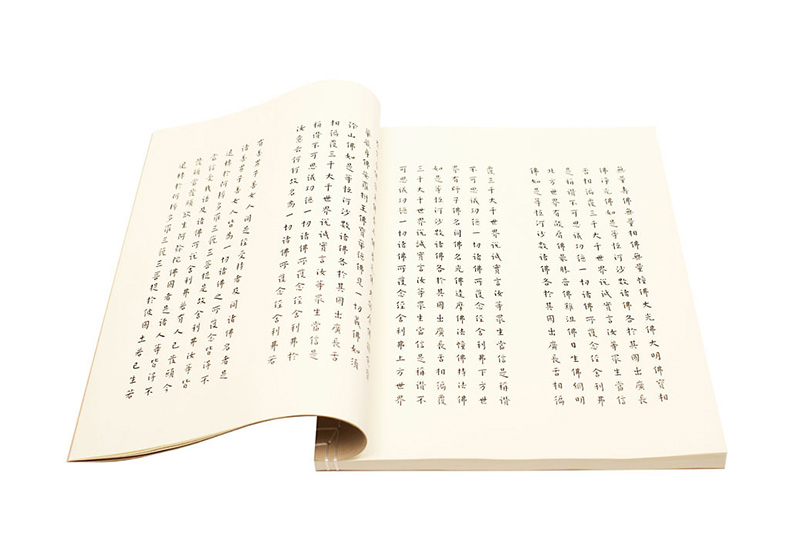 無量壽佛無量相佛無量幢佛大光佛大明佛寶相
佛淨光佛如是等恒河沙數諸佛各於其國出廣長
舌相徧覆三千大千世界說誠實言汝等眾生當信
是稱讚不可思議功德一切諸佛所護念經舍利弗
北方世界有焰肩佛最勝音佛難沮佛日生佛網明
佛如是等恒河沙數諸佛各於其國出廣長舌相徧
覆三千大千世界說誠實言汝等眾生當信是稱讚
不可思議功德一切諸佛所護念經舍利弗下方世
界有師子佛名聞佛名光佛達摩佛法幢佛持法佛
如是等恒河沙數諸佛各於其國出廣長舌相徧覆
三千大千世界說誠實言汝等眾生當信是稱讚不
可思議功德一切諸佛所護念經舍利弗上方世界
嚴身佛娑羅樹王佛寶華德佛見一切義佛如須
彌山佛如是等恒河沙數諸佛各於其國出廣長舌
相徧覆三千大千世界說誠實言汝等眾生當信是
稱讚不可思議功德一切諸佛所護念經舍利弗於
汝意云何何故名為一切諸佛所護念經舍利弗若
有善男子善女人聞是經受持者及聞諸佛名者是
諸善男子善女人皆為一切諸佛之所護念皆得不
退轉於阿耨多羅三藐三菩提是故舍利弗汝等皆
當信受我語及諸佛所說舍利弗若有人已發願今
發願當發願欲生阿彌陀佛國者是諸人等皆得不
退轉於阿耨多羅三藐三菩提於彼國土若已生若